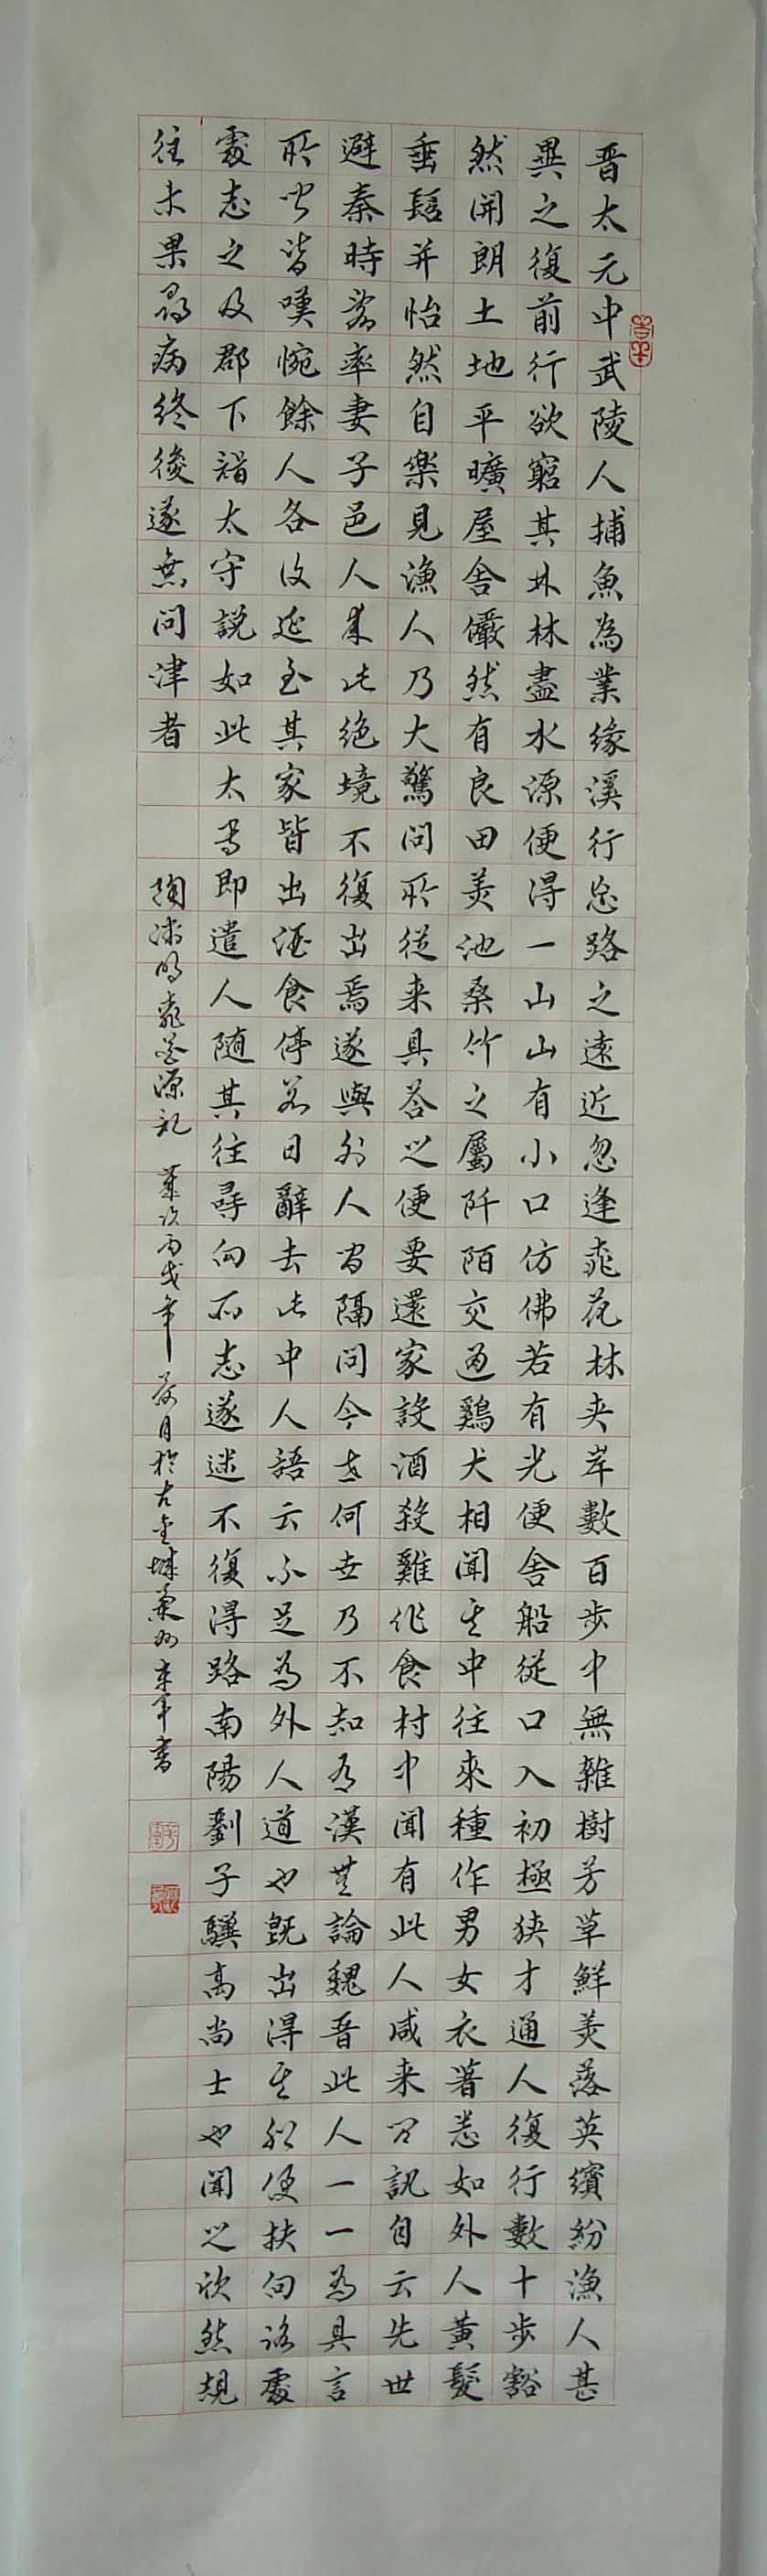 晋太元中武陵人捕魚為業緣溪行忘路之遠近忽逢桃花林夹岸數百步中無雜樹芳草鮮美落英繽紛漁人甚
異之復前行欲窮其林林盡水源便得一山山有小口仿佛若有光便舍船從口入初極狹才通人復行數十步豁
然開朗土地平曠屋舍儼然有良田美池桑竹之屬阡陌交通鷄犬相聞其中往來種作男女衣著悉如外人黄髮
垂髫并怡然自樂見漁人乃大驚問所從来具答之便要還家設酒殺雞作食村中聞有此人咸来問訊自云先世
避秦時亂率妻子邑人來此絶境不復出焉遂與外人間隔問今是何世乃不知有漢無論魏晋此人一一為具言
所聞皆嘆惋餘人各復延至其家皆出酒食停數日辭去此中人語云不足為外人道也既出得其船便扶向路處
處志之及郡下詣太守説如此太守即遣人随其往尋向所志遂迷不復得路南陽劉子驥高尚士也聞之欣然規
往未果尋病終後遂無問津者 陶淵明桃花源記 歲次丙戌年 月於古金城蘭州 書